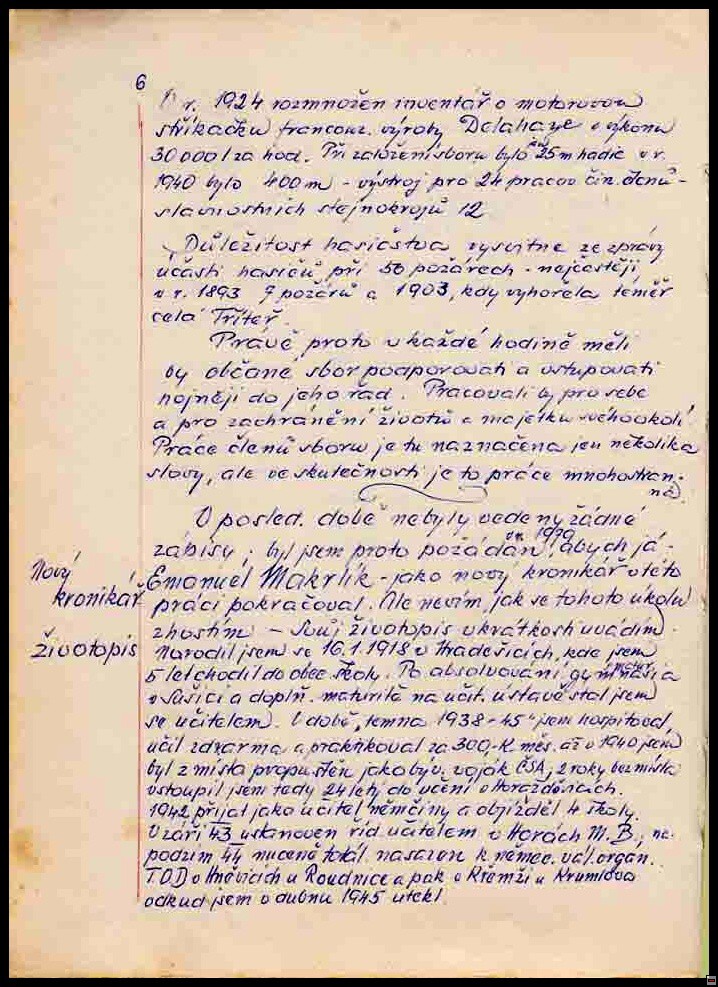 6
V r. 1924 rozmnožen inventář o motorovou
stříkačku francouz. výroby Delahaye o výkonu
30 000 l za hod. Při založení sboru bylo jen 25 m hadic v r.
1940 bylo 400 m - výstroj pro 24 pracov. čin. členů -
slavnostních stejnokrojů 12.
Důležitost hasičstva vysvitne ze zprávy
účasti hasičů při 50 požárech - nejčastěji
v r. 1893 7 požárů a 1903, kdy vyhořela téměř
celá Třítež.
Právě proto v každé hodině měli
by občané sbor podporovati a vstupovati
hojněji do jeho řad. Pracovali by pro sebe
a pro zachránění životů a majetku svého okolí.
Práce členů sboru je tu naznačena jen několika
slovy, ale ve skutečnosti je to práce mnohostran-
ná.
V posled. době nebyly vedeny žádné
zápisy; byl jsem proto požádán v r. 1979, abych já -
Nový
kronikář
Emanuel Makrlík - jako nový kronikář v této
práci pokračoval. Ale nevím, jak se tohoto úkolu
životopis
zhostím - Svůj životopis v krátkosti uvádím.
Narodil jsem se 16.1.1918 v Hradešicích, kde jsem
5 let chodil do obec. školy. Po absolvování gymnasia matur.
v Sušici a doplň. maturitě na učit. ústavě stal jsem
se učitelem. V době „temna 1938-45" jsem hospitoval,
učil zdarma a praktikoval za 300,-K měs. až v 1940 jsem
byl z místa propuštěn jako býv. voják ČSA, 2 roky bez místa
vstoupil jsem tedy 24 letý do učení v Horažďovicích.
1942 přijat jako učitel němčiny a objížděl 4 školy.
V září 43 ustanoven říd. učitelem v Horách M. B., na
podzim 44 nuceně totál. nasazen k němec. vál. organ.
TOD v Hněvicích u Roudnice a pak v Křemži u Krumlova
odkud jsem v dubnu 1945 utekl.